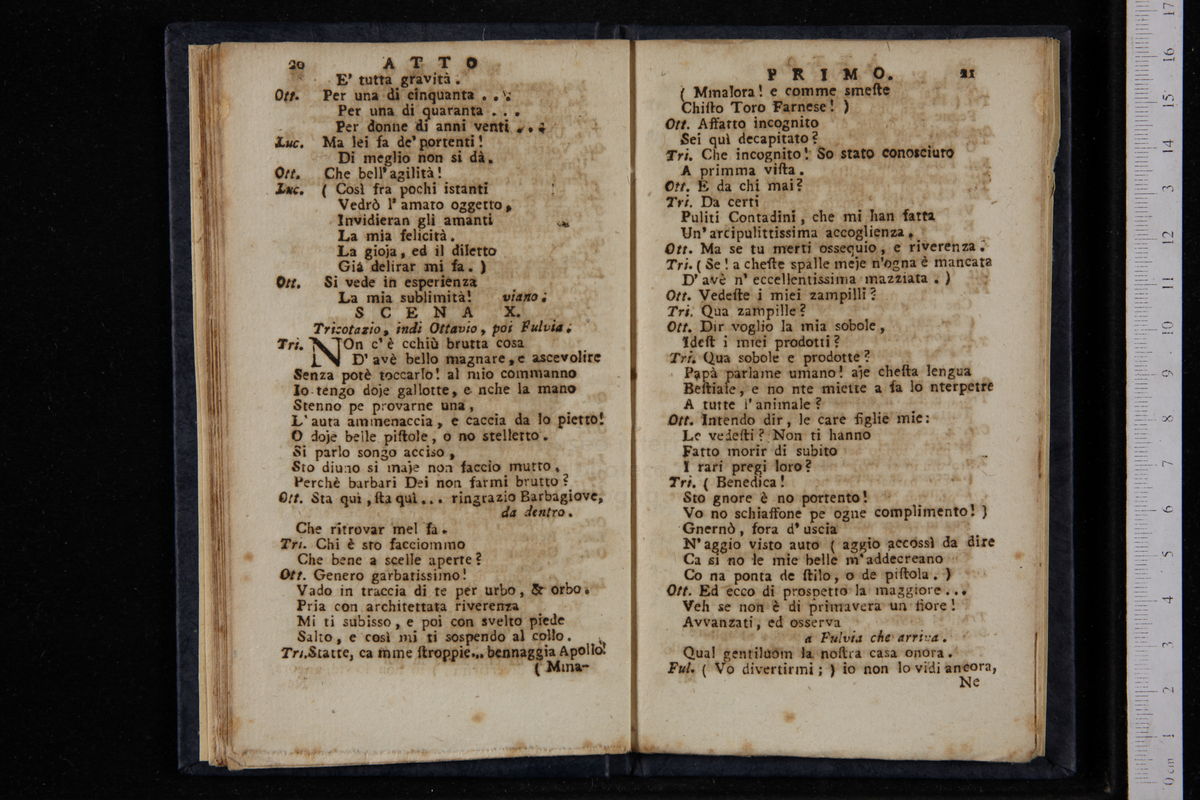 20 ATTO
E' tutta gravità.
Ott. Per una di cinquanta . . .
Per una di quaranta . . .
Per donne di anni venti . . .
Luc. Ma lei fa de' portenti!
Di meglio non si dà.
Ott. Che bell' agilità!
Luc. ( Così fra pochi istanti
Vedrò l' amato oggetto,
Invidieran gli amanti
La mia felicità.
La gioja, ed il diletto
Già delirar mi fa. )
Ott. Si vede in esperienza
La mia sublimità! viano.
SCENA X.
Tricotazio, indi Ottavio, poi Fulvia.
Tri. NOn c' è cchiù brutta cosa
D' avè bello magnare, e ascevolire
Senza potè toccarlo! al mio commanno
Io tengo doje gallotte, e nche la mano
Stenno pe provarne una,
L' auta ammenaccia, e caccia da lo pietto!
O doje belle piſtole, o no stelletto.
Si parlo songo acciso,
Sto diuno si maje non faccio mutto,
Perchè barbari Dei non farmi brutto?
Ott. Sta quì, ſta quì... ringrazio Barbagiove,
da dentro.
Che ritrovar mel fa.
Tri. Chi è sto facciommo
Che bene a scelle aperte?
Ott. Genero garbatissimo!
Vado in traccia di te per urbo, & orbo.
Pria con architettata riverenza
Mi ti subisso, e poi con svelto piede
Salto, e così mi ti sospendo al collo.
Tri. Statte, ca mme ſtroppie... bennaggia Apollo!
( Mma-
PRIMO. 21
( Mmalora! e comme smeſte
Chiſto Toro Farnese! )
Ott. Affatto incognito
Sei quì decapitato?
Tri. Che incognito! So stato conosciuto
A primma viſta.
Ott. E da chi mai?
Tri. Da certi
Puliti Contadini, che mi han fatta
Un' arcipulittissima accoglienza.
Ott. Ma se tu merti ossequio, e riverenza.
Tri. ( Se! a cheſte spalle meje n'ogna è mancata
D' avè n' eccellentissima mazziata. )
Ott. Vedeſte i miei zampilli?
Tri. Qua zampille?
Ott. Dir voglio la mia sobole,
Ideſt i miei prodotti?
Tri. Qua sobole e prodotte?
Papà parlame umano! aje cheſta lengua
Beſtiale, e no nte miette a fa lo nterpetre
A tutte l' animale?
Ott. Intendo dir, le care figlie mie:
Le vedeſti? Non ti hanno
Fatto morir di subito
I rari pregi loro?
Tri. ( Benedica!
Sto gnore è no portento!
Vo no schiaffone pe ogne complimento! )
Gnernò, fora d' uscia
N' aggio visto auto ( aggio accossì da dire
Ca si no le mie belle m' addecreano
Co na ponta de ſtilo, o de piſtola. )
Ott. Ed ecco di prospetto la maggiore...
Veh se non è di primavera un fiore!
Avvanzati, ed osserva
a Fulvia che arriva.
Qual gentiluom la noſtra casa onora.
Ful. ( Vo divertirmi; ) io non lo vidi ancora,
Ne
0 cm 1 2 3 4 5 6 7 8 9 10 11 12 3 14 15 16 17